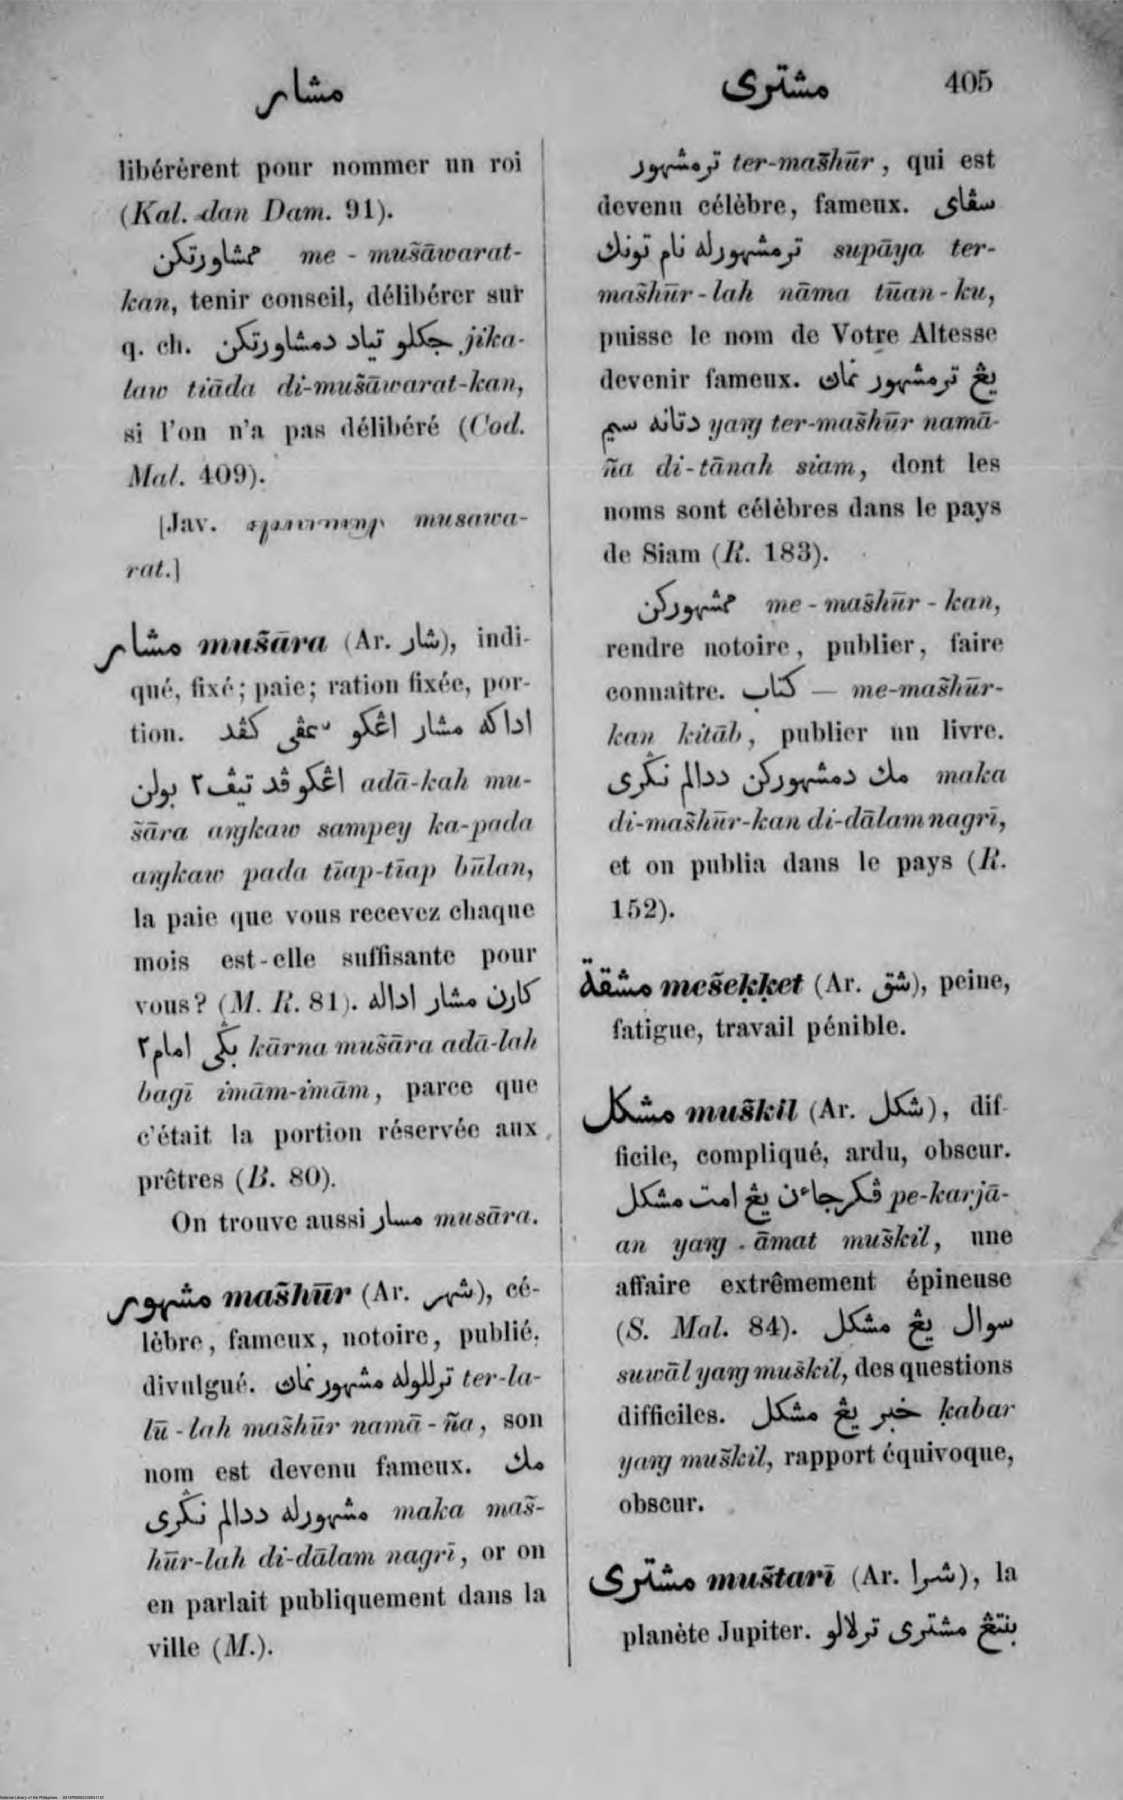 مشار
مشترى 405
libérèrent pour nommer un roi
(Kal. dan Dam. 91).
ممشاورتكن me - mus̃āwarat-
kan, tenir conseil, délibérer sur
q. ch. جكلو تياد دمشاورتكن jika-
law tiāda di-mus̃āwarat-kan,
si l'on n'a pas délibéré (Cod.
Mal. 409).
[Jav. musawa-
rat.]
مشار mus̃āra (Ar. شار), indi-
qué, fixé; paie; ration fixée, por-
tion. اداكه مشار اڠكو كڤد
اڠكو ڤد تيڤ٢ بولن adā-kah mu-
s̃āra aŋkaw sampey ka-pada
aŋkaw pada tīap-tīap būlan,
la paie que vous recevez chaque
mois est-elle suffisante pour
vous? (M. R. 81). كارن مشار اداله
بݢى امام٢ kārna mus̃āra adā-lah
bagī imām-imām, parce que
c'était la portion réservée aux
prêtres (B. 80).
On trouve aussi مسار musāra.
مشهور mas̃hūr (Ar. شهر), cé-
lèbre, fameux, notoire, publié,
divulgué. ترللوله مشهور نماڽ ter-la-
lū-lah mas̃hūr namā-ña, son
nom est devenu fameux. مك
مشهورله ددالم نݢرى maka mas̃-
hūr-lah di-dālam nagrī, or on
en parlait publiquement dans la
ville (M.).
ترمشهور ter-mas̃hūr, qui est
devenu célèbre, fameux. سڤاى
ترمشهورله نام تونك supāya ter-
mas̃hūr-lah nāma tūan-ku,
puisse le nom de Votre Altesse
devenir fameux. يڠ ترمشهور نماڽ
دتانه سيم yaŋ ter-mas̃hūr namā-
ña di-tānah siam, dont les
noms sont célèbres dans le pays
de Siam (R. 183).
ممشهوركن me-mas̃hūr-kan,
rendre notoire, publier, faire
connaître. كتاب — me-mas̃hūr-
kan kitāb, publier un livre.
مك دمشهوركن ددالم نݢرى maka
di-mas̃hūr-kan di-dālam nagrī,
et on publia dans le pays (R.
152).
مشقة mes̃eḳḳet (Ar. شق), peine,
fatigue, travail pénible.
مشكل mus̃kil (Ar. شكل), dif-
ficile, compliqué, ardu, obscur.
ڤكرجاءن يڠ امت مشكل pe-karjā-
an yaŋ āmat mus̃kil, une
affaire extrêmement épineuse
(S. Mal. 84). سوال يڠ مشكل
suwāl yaŋ mus̃kil, des questions
difficiles. خبر يڠ مشكل ḳabar
yaŋ mus̃kil, rapport équivoque,
obscur.
مشترى mus̃tarī (Ar. شرا), la
planète Jupiter. بنتڠ مشترى ترلالو